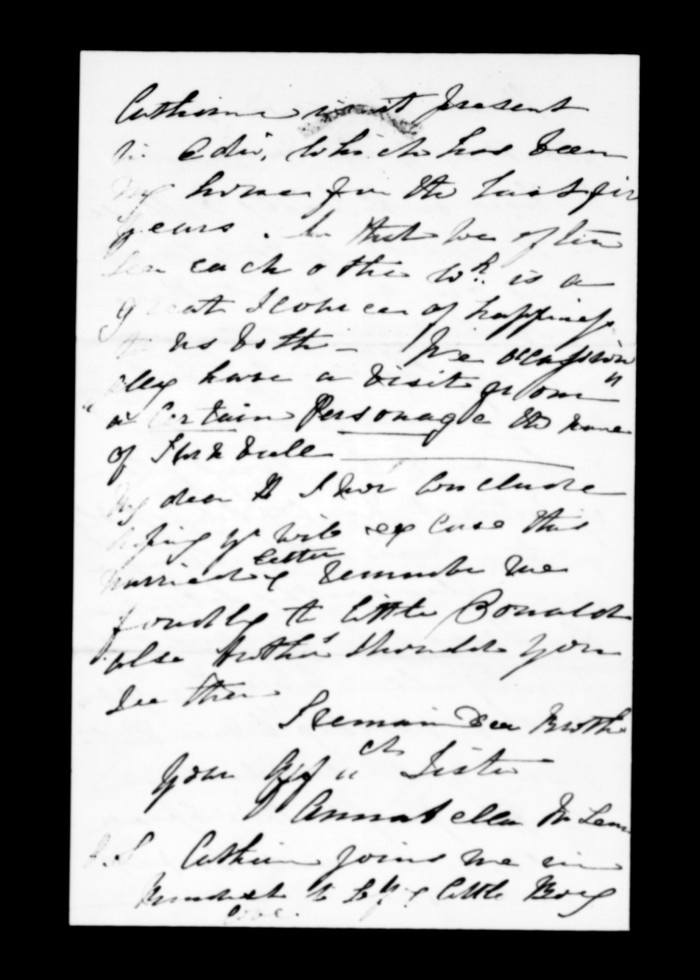 Catherine is at present
in Edin, which has been
my home for the last five
years. So that we often
see each other wh. is a
great source of happiness
to us both - We occasion
ally have a visit from
a Certain Personage the name
of
My dear D I now conclude
hoping yu will excuse this
hurried letter & remember me
fondly to little Donald
also Brothers should you
see them
I remain Dear Brother
Your Aff ct Sister
Annabella McLean
P.S. Catherine joins me in
to & little Boy
love.